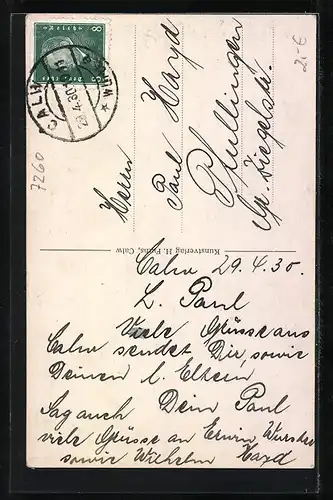 8
Deutsches Reich
CALW
29.4.30
7260
2.-€
Herrn
Paul Hayd
Pfullingen
Gr. Ziegelstr.
Kunstverlag H. Fuchs, Calw
Calw 29.4.30.
L. Paul
Viele Grüsse aus
Calw sendet Dir, sowie
Deinen l. Eltern
Dein Paul
Sag auch
viele Grüsse an Erwin Wurster
sowie Wilhelm Hayd